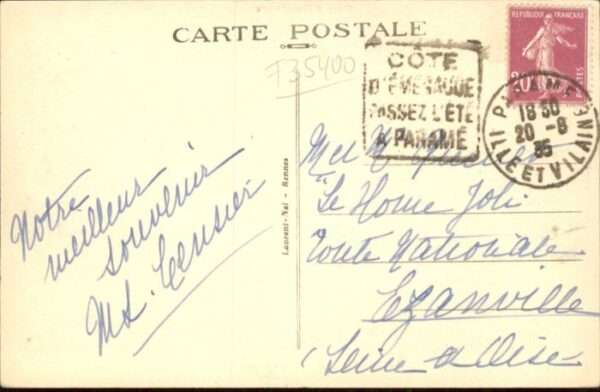 CARTE POSTALE
F35400
RÉPUBLIQUE FRANÇAISE
POSTES
COTE
D'ÉMERAUDE
PASSEZ L'ÉTÉ
A PARAMÉ
PARAMÉ
18 30
20 - 8
35
ILLE ET VILAINE
Notre
meilleur
souvenir
Laurent-Nel - Rennes
M et M
"Le Home Joli
Route Nationale
Ezanville
(Seine & Oise